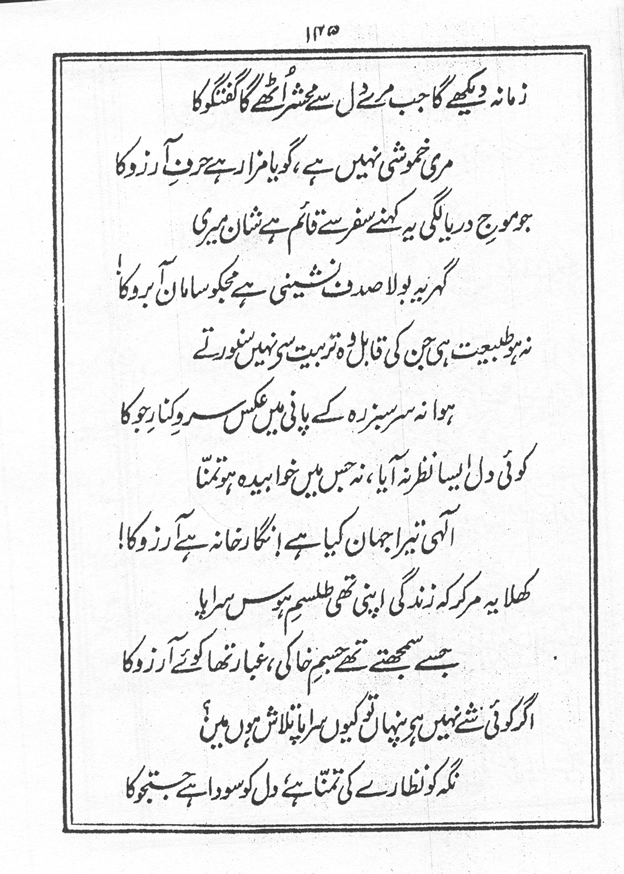 ۱۴۵
زمانہ دیکھے گا جب مرے دل سے محشر اُٹھے گا گفتگو کا
مری خموشی نہیں ہے، گویا مزار ہے حرفِ آرزو کا
جو موجِ دریا لگی یہ کہنے سفر سے قائم ہے شان میری
گہر یہ بولا صدف نشینی ہے مجکو سامان آبرو کا!
نہ ہو طبیعت ہی جن کی قابل وہ تربیت سی نہیں سنورتے
ہوا نہ سرسبز رہ کے پانی میں عکس سروِ کنارِ جو کا
کوئی دل ایسا نظر نہ آیا، نہ جس میں خوابیدہ ہو تمنّا
الٰہی تیرا جہان کیا ہے! نگار خانہ ہے آرزو کا!
کھلا یہ مر کر کہ زندگی اپنی تھی طلسمِ ہوس سراپا
جسے سمجھتے تھے جسمِ خاکی، غبار تھا کوئے آرزو کا
اگر کوئی شے نہیں ہی پنہاں تو کیوں سراپا تلاش ہوں میں؟
نگہ کو نظارے کی تمنّا ہے دل کو سودا ہے جستجو کا